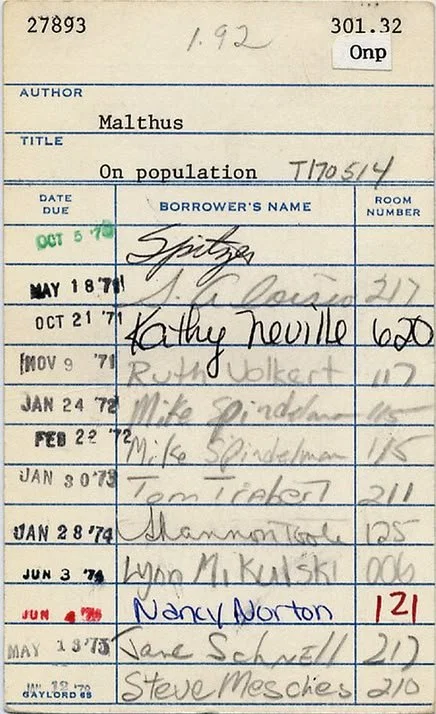 27893 1.92 301.32
Onp
AUTHOR
Malthus
TITLE
On population T170514
DATE DUE BORROWER'S NAME ROOM NUMBER
OCT 5 '70 Spitzer
MAY 18 '71 S. 217
OCT 21 '71 Kathy Neville 620
NOV 9 '71 Ruth Volkert 117
JAN 24 '72 Mike Spindelman 115
FEB 22 '72 Mike Spindelman 115
JAN 30 '73 Tom Trabert 211
JAN 28 '74 Shannon Toole 125
JUN 3 '74 Lynn Mikulski 006
JUN 4 Nancy Norton 121
MAY 13 '75 Jane Schnell 217
Steve Meschies 210
GAYLORD 65